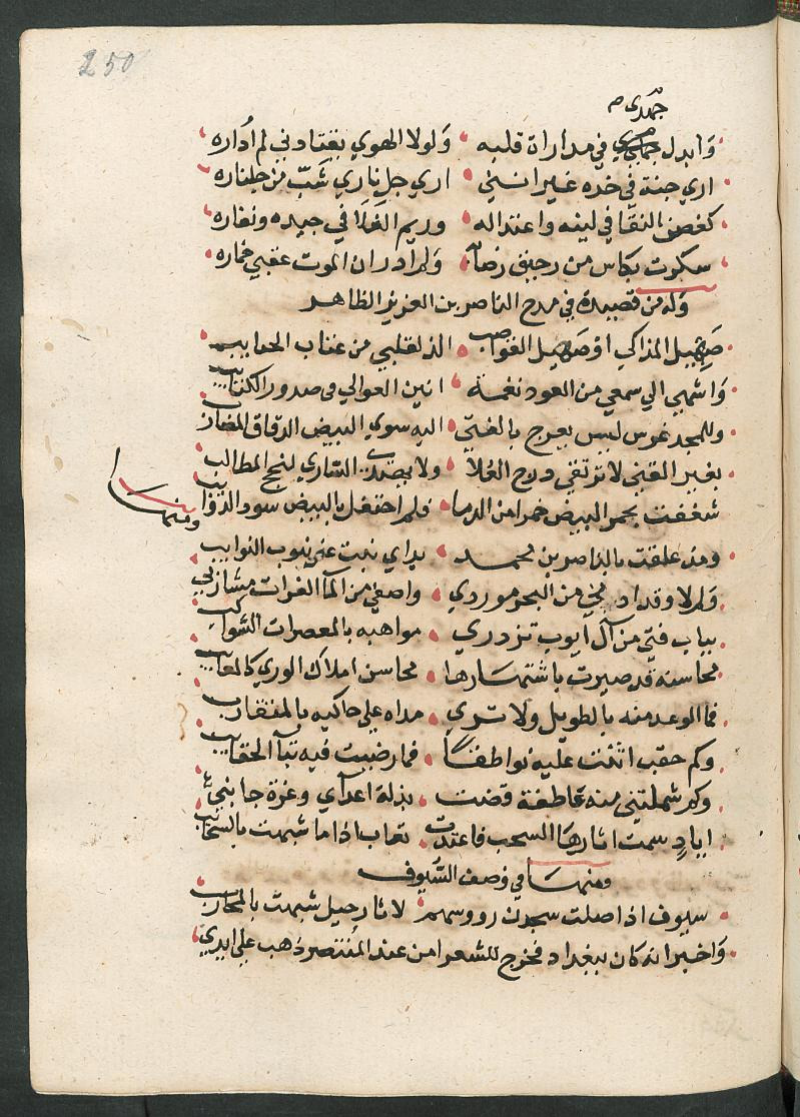 250
جهدي م
وابدل جهدي في مداراة قلبه ولولا الهوي يقتادني لم أداره
اري جنة في خده غير انني اري جل ناري شب من جلناره
كغصن النقا في لينه واعتداله وريم الفلا في جيده ونفاره
سكرت بكاس من رحيق رضابه ولم ادر ان الموت عقبي خماره
وله من قصيدة في مدح الناصر بن العزيز الظاهر
صهيل المذاكي او صهيل القواضب الذ لقلبي من عتاب الحبايب
واشهي الي سمعي من العود نغمة انين العوالي في صدور الكتائب
وللمجد غرس ليس يعرج بالفتي اليه سوي البيض الرقاق المضارب
بغير القني لا ترتقي درج العلا ولا يهتدي الساري لنجح المطالب
شغفت بحمر البيض خمرا من الدما فلم احتفل بالبيض سود الذوايب
ومنها
ومذ علقت بالناصر بن محمد يداي نبت عني نيوب النوايب
ولم لا وقد ادني من البحر موردي واصفي من الما الفرات مشاربي
بباب فتي من آل ايوب تزدري مواهبه بالمعصرات السواكب
محاسنه قد صيرت باشتهارها محاسن املاك الوري كالمعايب
فما الوعد منه بالطويل ولا تري مداه علي حاكيه بالمتقارب
وكم حقب اثنت عليه نواطقا فما رضيت فيه ثبآ الحقايب
وكم شملتني منه عاطفة قضت بذلة اعداي وعزة جانبي
اياد سمت اثارها السحب فاعتدت تعاب اذا ما شبهت بالسحايب
ومنها في وصف السيوف
سيوف اذا صلت سجدن رووسهم لاثار جيل شبهت بالمحارب
واخبر انه كان ببغداد فخرج للشعرا من عند المنتصر ذهب علي ايدي